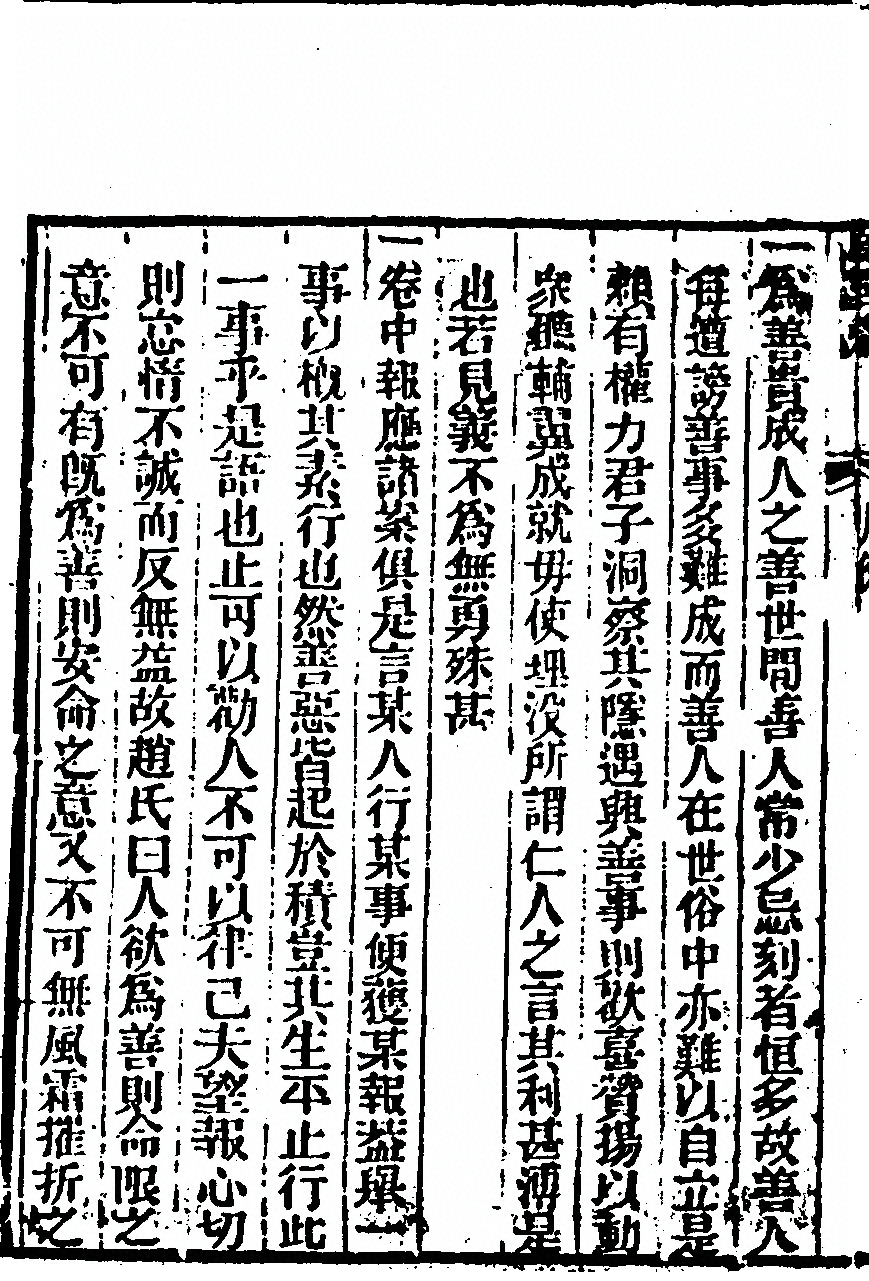 一為善貴成人之善世間善人常少忌刻者恒多故善人
每遭謗善事多難成而善人在世俗中亦難以自立是
賴有權力君子洞察其隱遇與善事則歡喜贊揚以動
衆聽輔翼成就毋使埋没所謂仁人之言其利甚溥是
也若見義不為無勇殊甚
一卷中報應諸案俱是言某人行某事便獲某報葢舉一
事以概其素行也然善惡皆起於積豈其生平止行此
一事乎是語也止可以勸人不可以律己夫望報心切
則怠惰不誠而反無益故趙氏曰人欲為善則命限之
意不可有既為善則安命之意又不可無風霜摧折之